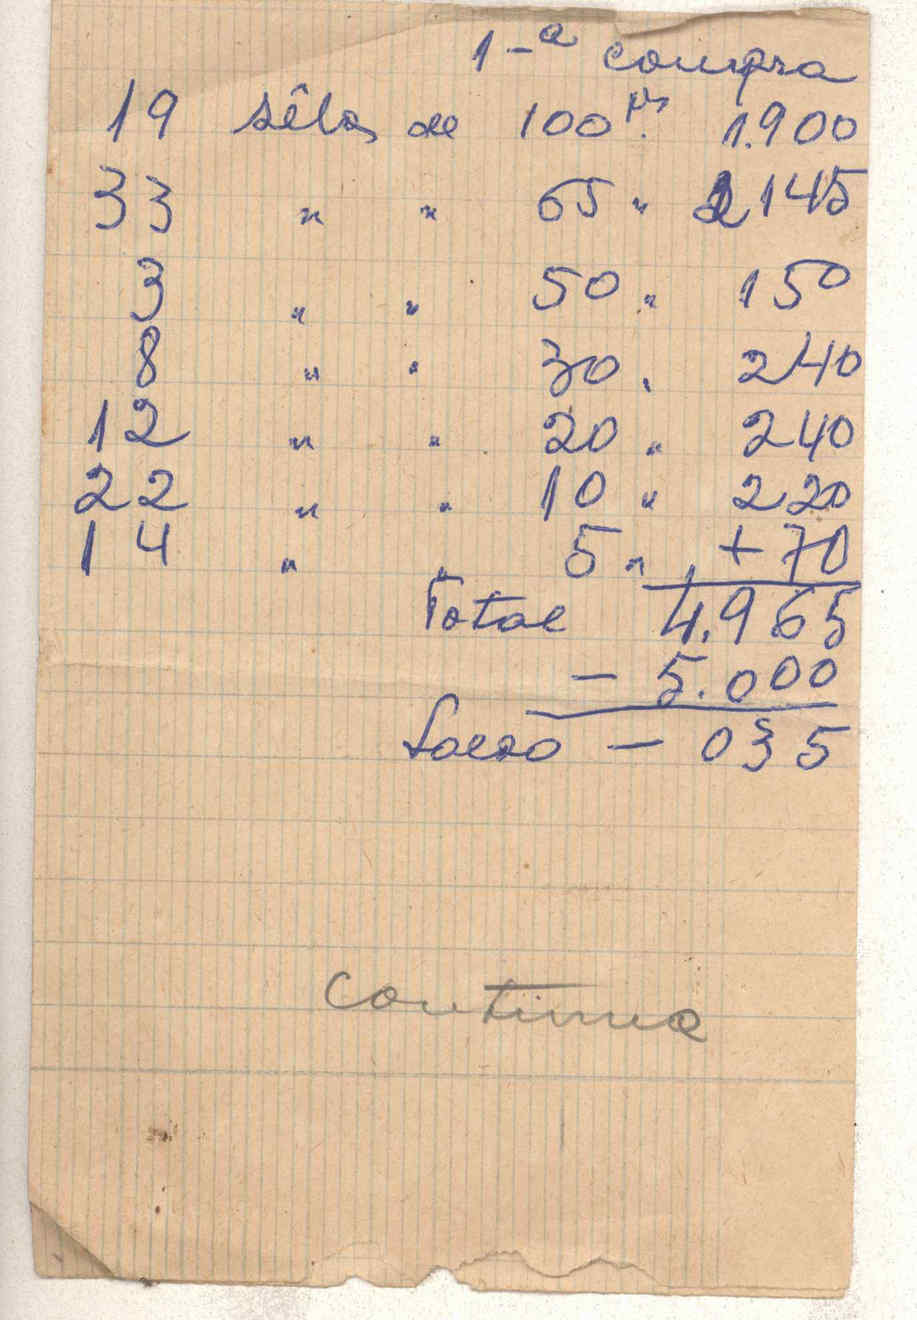 1-ª compra
19 sêlos de 100 rs. 1.900
33 " " 65 " 2145
3 " " 50 " 150
8 " " 30 " 240
12 " " 20 " 240
22 " " 10 " 220
14 " " 5 " + 70
Total 4.965
- 5.000
- 035
continua